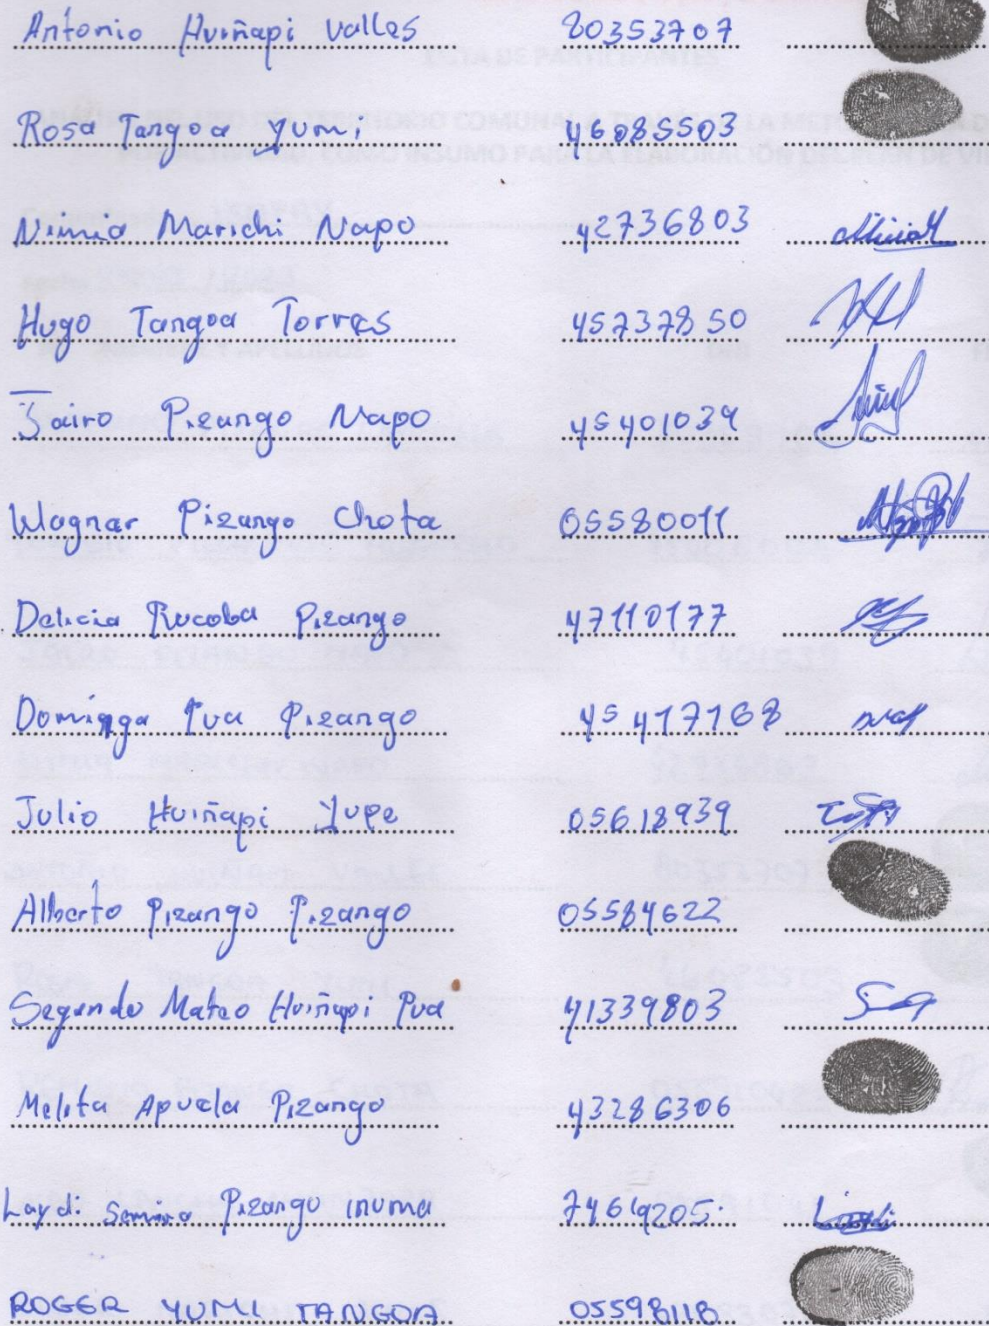 Antonio Huiñapi Valles 80353707
Rosa Tangoa Yumi 46085503
Nimia Marichi Napo 42736803
Hugo Tangoa Torres 45737850
Jairo Pizango Napo 45401039
Wagnar Pizango Chota 05580011
Delicia Rucoba Pizango 47110177
Dominga Pua Pizango 45417168
Julio Huiñapi Yupe 05618939
Alberto Pizango Pizango 05584622
Segundo Mateo Huiñapi Pua 41339803
Melita Apuela Pizango 43286306
Laydi Pizango inuma 74619205
ROGER YUMI TANGOA 05598118